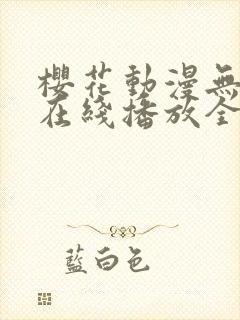 櫻花動漫無
在綫播放全
藍白色